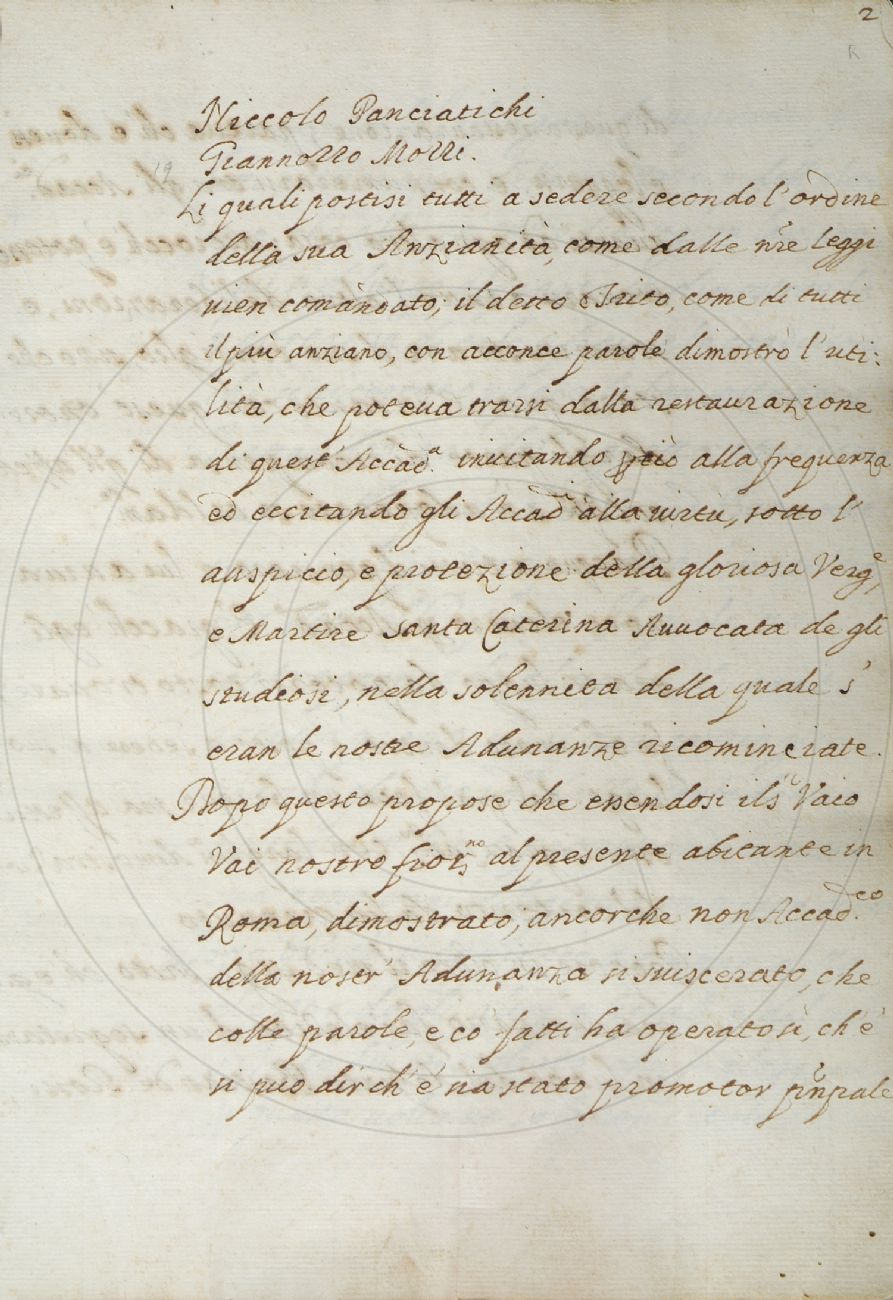 2
Niccolo Panciatichi
Giannozzo Mozzi.
Li quali postisi tutti a sedere secondo l'ordine
della sua Anzianità, come dalle nr̃e leggi
vien comandato; il detto Irito, come di tutti
il più anziano, con acconce parole dimostrò l'uti:
lità, che poteua trarsi dalla restaurazione
di quest' Accad.a inuitando ꝑciò alla frequenza
ed eccitando gli Accad.ci alla uirtù, sotto l'
auspicio, e protezione della gloriosa Verg.e,
e Martire Santa Caterina Auuocata de gli
studiosi, nella solennità della quale s'
eran le nostre Adunanze ricominciate.
Dopo questo propose che essendosi il S.r Vaio
Vai nostro fior.no al presente abitante in
Roma, dimostrato, ancorche non Accad.co
della nostr' Adunanza si suiscerato, che
colle parole, e co' fatti ha operato sì, ch' e'
si può dir ch' e' sia stato promotor pñpale